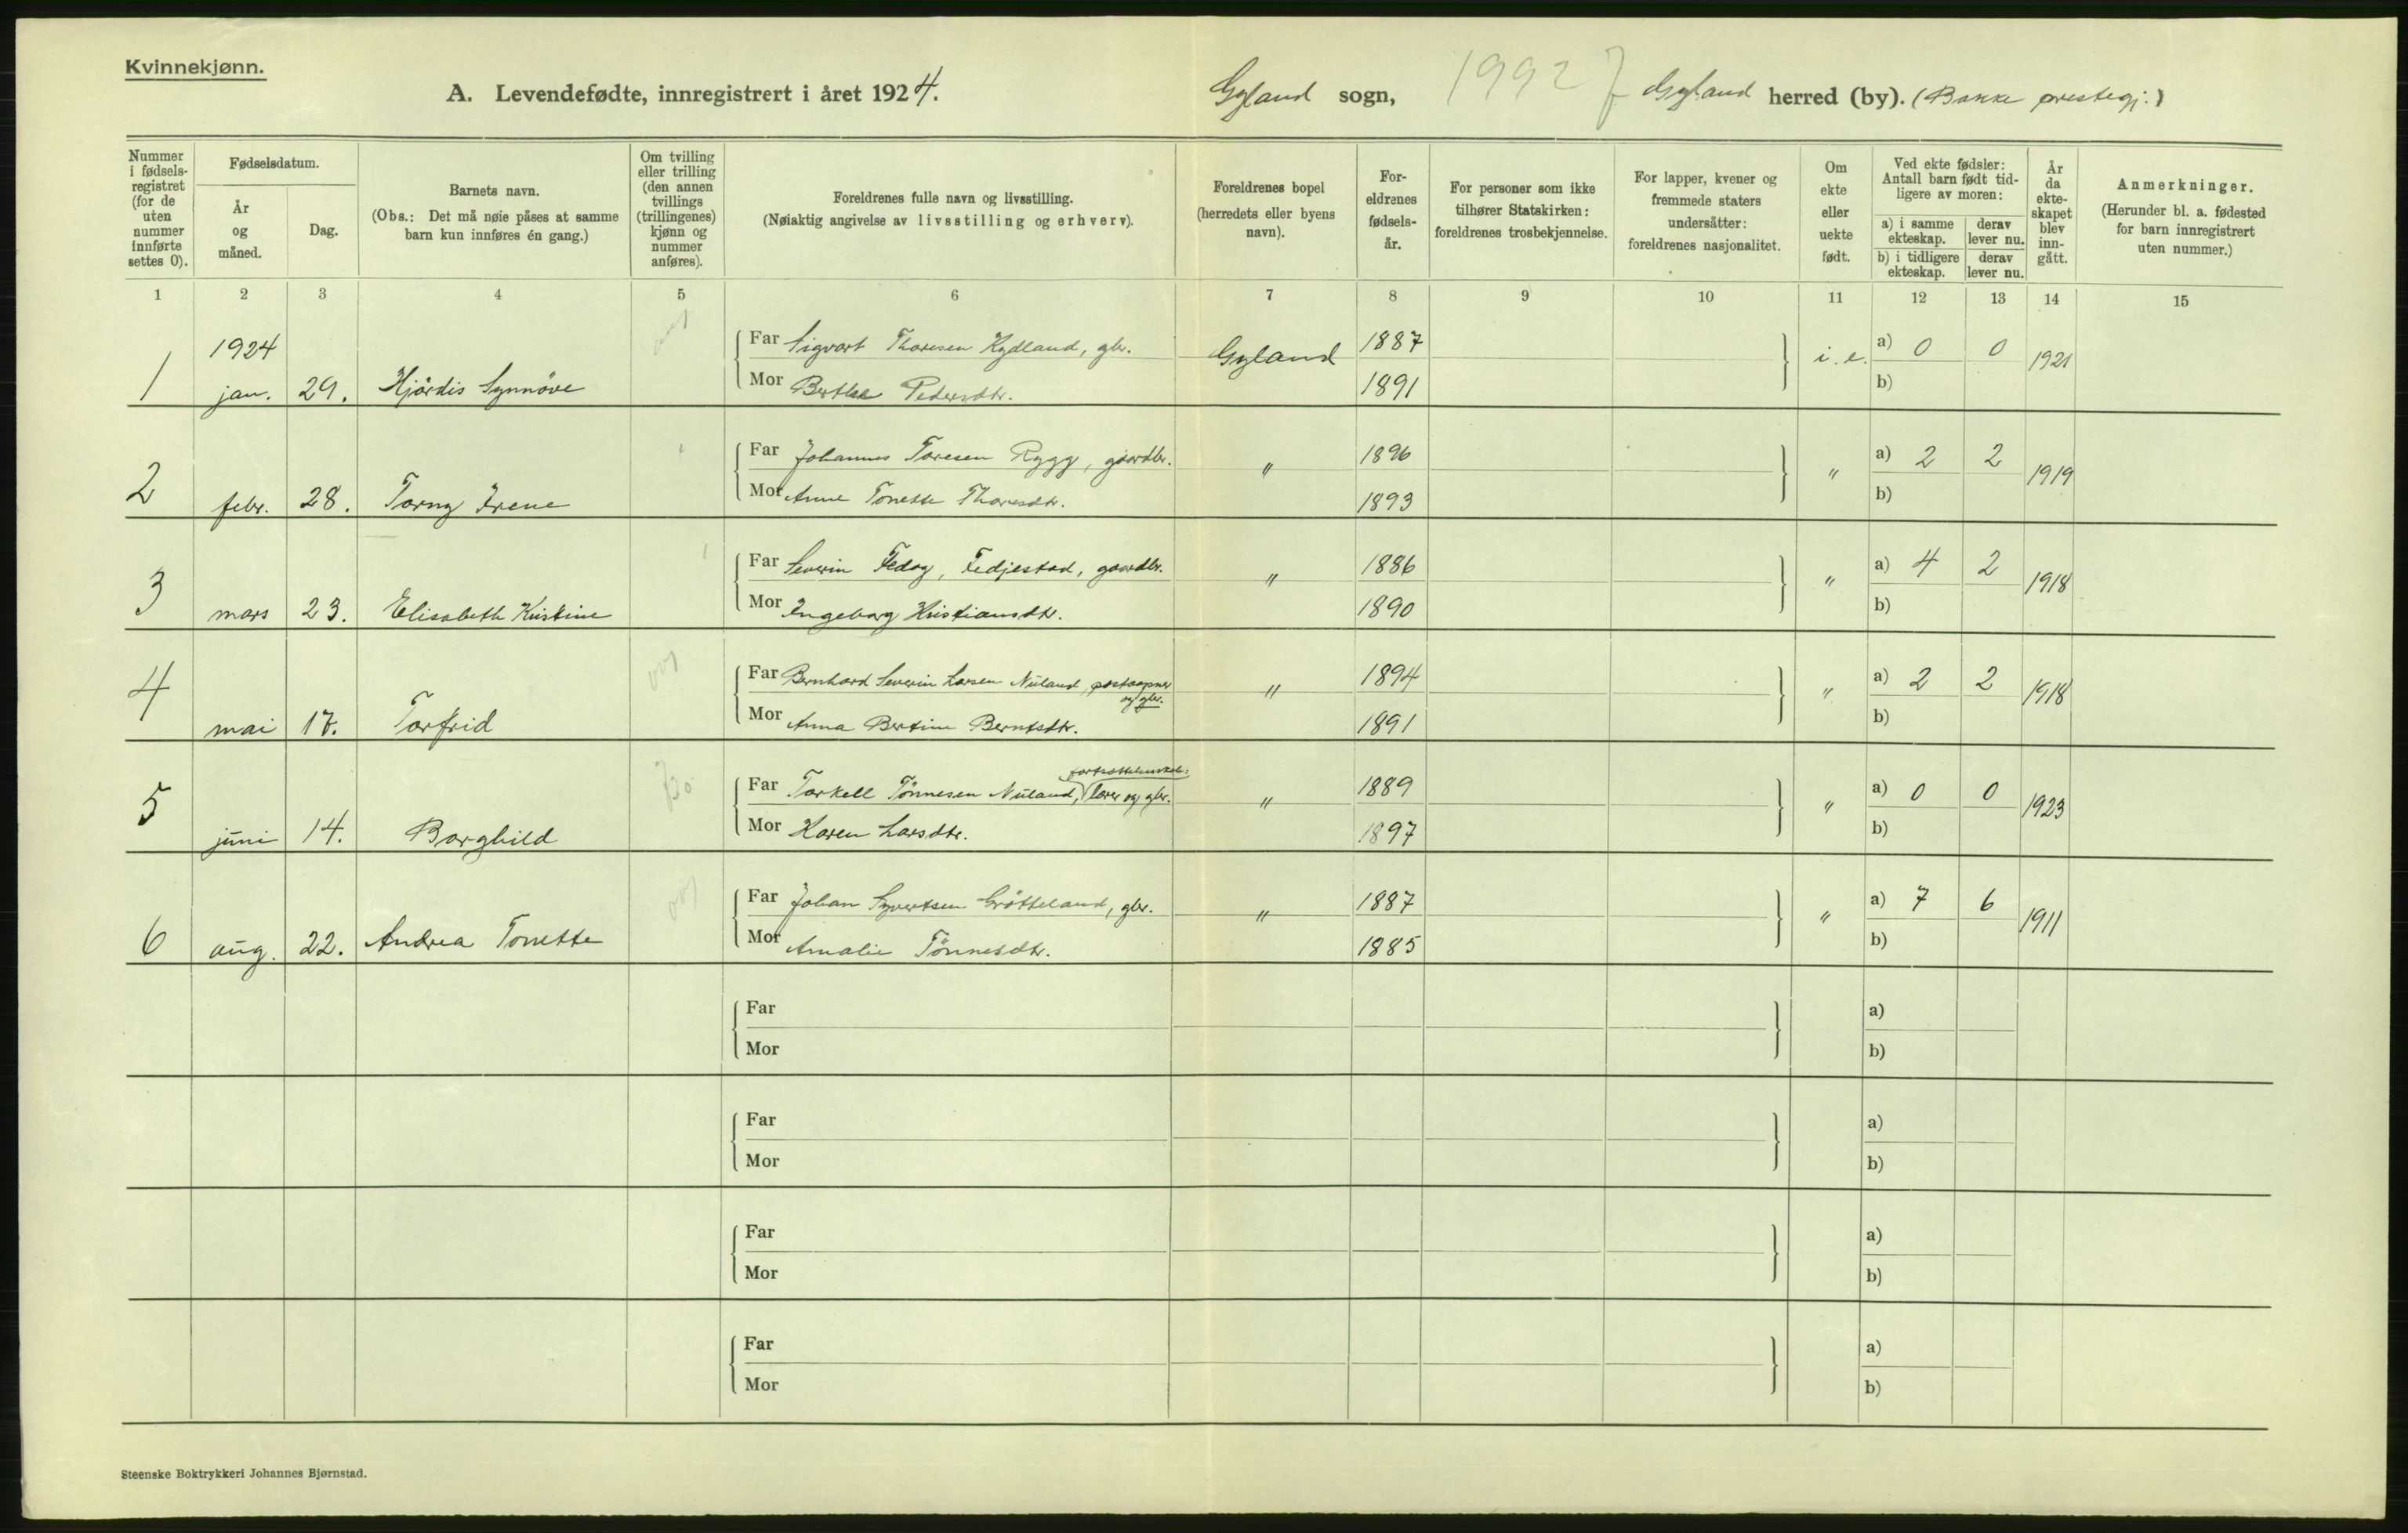 Kvinnekjønn.
A. Levendefødte, innregistrert i året 1924. Gyland sogn, 1992 Gyland herred (by). (Bakke prestegj.)
Nummer i fødsels-registret (for de uten nummer innførte settes 0).
Fødselsdatum.
År og måned.
Dag.
Barnets navn.
(Obs.: Det må nøie påses at samme barn kun innføres én gang.)
Om tvilling eller trilling (den annen tvillings (trillingenes) kjønn og nummer anføres).
Foreldrenes fulle navn og livsstilling.
(Nøiaktig angivelse av livsstilling og erhverv).
Foreldrenes bopel (herredets eller byens navn).
For-eldrenes fødsels-år.
For personer som ikke tilhører Statskirken: foreldrenes trosbekjennelse.
For lapper, kvener og fremmede staters undersåtter: foreldrenes nasjonalitet.
Om ekte eller uekte født.
Ved ekte fødsler: Antall barn født tid-ligere av moren:
a) i samme ekteskap. derav lever nu.
b) i tidligere ekteskap. derav lever nu.
År da ekte-skapet blev inn-gått.
Anmerkninger.
(Herunder bl. a. fødested for barn innregistrert uten nummer.)
1 2 3 4 5 6 7 8 9 10 11 12 13 14 15
1924
Far Sigvart Thoresen Kydland, gbr. Gyland 1887 i. e. a) 0 0 1921
1 jan. 29. Hjördis Synnöve Mor Berthe Pedersdtr. 1891 b)
Far Johannes Toresen Rygg, gaardbr. " 1896 " a) 2 2 1919
2 febr. 28. Torny Irene Mor Anne Tonette Thoresdtr. 1893 b)
Far Severin Fedog, Fedjestad, gaardbr. " 1886 " a) 4 2 1918
3 mars 23. Elisabeth Kristine Mor Ingeborg Kristiansdtr. 1890 b)
Far Bernhard Severin Larsen Nuland, postaapner og gbr. " 1894 " a) 2 2 1918
4 mai 17. Torfrid Mor Anna Bertine Berntsdtr. 1891 b)
Far Torkell Tönnesen Nuland, lærer og gbr. " 1889 " a) 0 0 1923
5 juni 14. Borghild Mor Karen Larsdtr. 1897 b)
Far Johan Syvertsen Grötteland, gbr. " 1887 " a) 7 6 1911
6 aug. 22. Andrea Tonette Mor Amalie Tönnesdtr. 1885 b)
Far a)
Mor b)
Far a)
Mor b)
Far a)
Mor b)
Far a)
Mor b)
Steenske Boktrykkeri Johannes Bjørnstad.